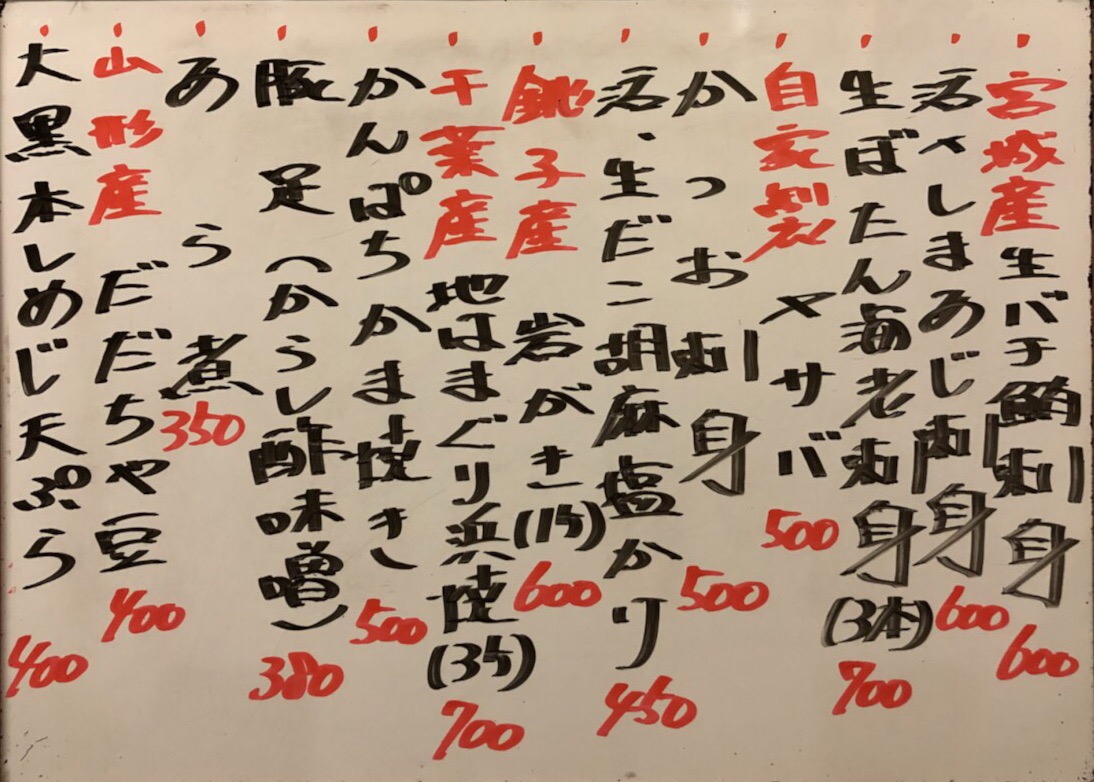 宮城産生バチ鮪刺身 600
活〆しまあじ刺身 600
生ぼたん海老刺身(3本) 700
自家製〆サバ 500
かつお刺身 500
活、生だこ胡麻塩かり 450
銚子産岩がき(1ケ) 600
千葉産地はまぐり浜焼(3ケ) 700
かんぱちかま焼き 500
豚足(からし酢味噌) 380
あら煮 350
山形産だだちゃ豆 400
大黒本しめじ天ぷら 400